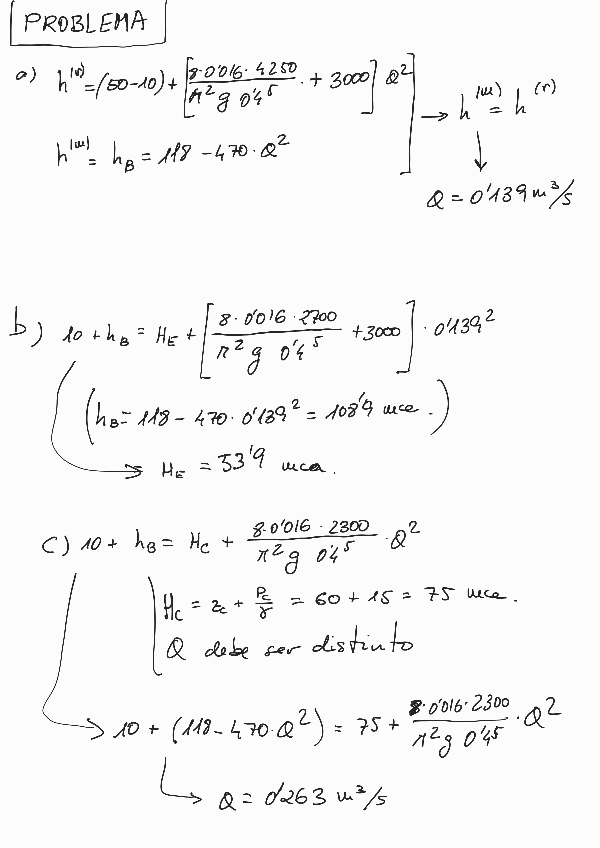 PROBLEMA
a) h⁽ʳ⁾ = (50-10) + [8·0'016·4250 / π² g 0'4⁵ + 3000] Q²
h⁽ᵐ⁾ = h_B = 118 - 470·Q²
→ h⁽ᵐ⁾ = h⁽ʳ⁾
↓
Q = 0'139 m³/s
b) 10 + h_B = H_E + [8·0'016·2700 / π² g 0'4⁵ + 3000] · 0'139²
(h_B = 118 - 470·0'139² = 108'9 mca.)
→ H_E = 53'9 mca.
c) 10 + h_B = H_C + 8·0'016·2300 / π² g 0'4⁵ · Q²
H_C = z_c + P_c/γ = 60 + 15 = 75 mca.
Q debe ser distinto
→ 10 + (118 - 470·Q²) = 75 + 8·0'016·2300 / π² g 0'4⁵ · Q²
→ Q = 0'263 m³/s